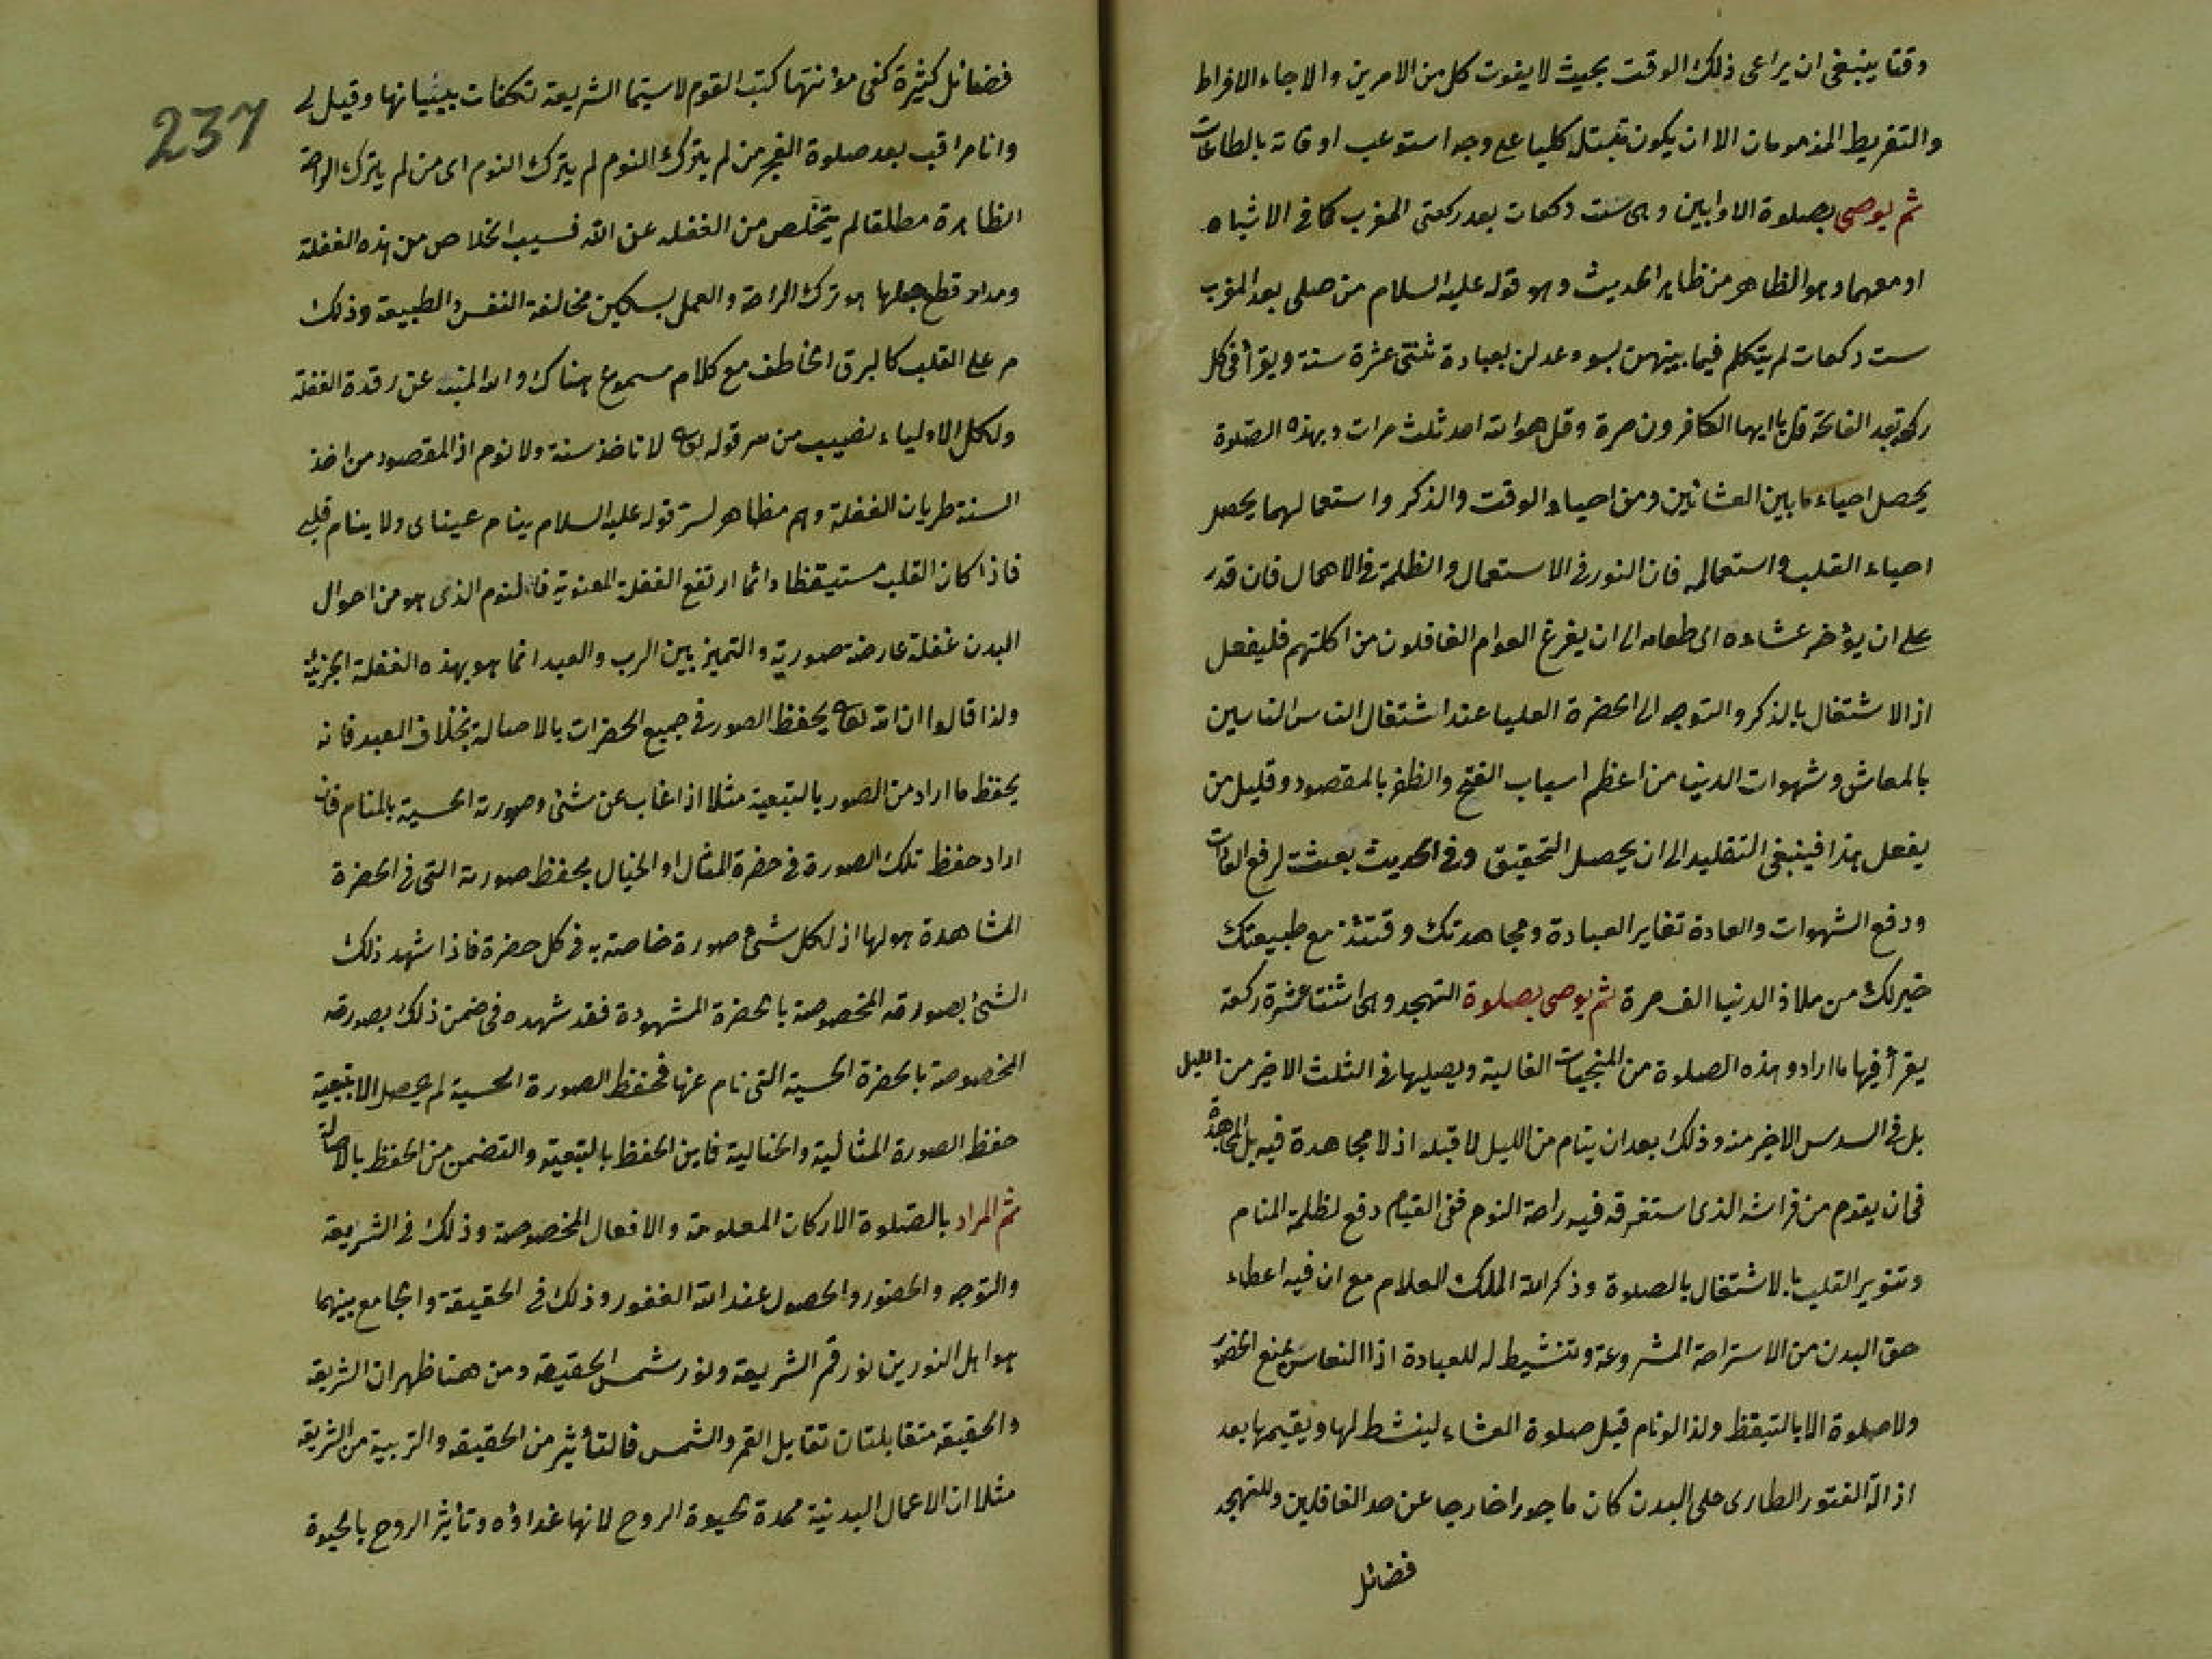 وقتا ينبغى ان يراعى ذلك الوقت بحيث لا يفوت كل من الامرين والا جاء الافراط
والتفريط المذمومان الا ان يكون تبتله كليا على وجه استوعب اوقاته بالطاعات
ثم يوصى بصلوة الاوابين وهى ست ركعات بعد ركعتى المغرب كما فى الاشباه
او معهما وهو الظاهر من ظاهر الحديث وهو قوله عليه السلام من صلى بعد المغرب
ست ركعات لم يتكلم فيما بينهن بسوء عدلن بعبادة ثنتى عشرة سنة ويقرأ فى كل
ركعة بعد الفاتحة قل يا ايها الكافرون مرة وقل هو الله احد ثلث مرات وبهذه الصلوة
يحصل احياء ما بين العشائين ومن احياء الوقت والذكر واستعمالهما يحصل
احياء القلب واستعماله فان النور فى الاستعمال والظلمة فى الاهمال فان قدر
على ان يؤخر عشاءه اى طعامه الى ان يفرغ العوام الغافلون من اكلتهم فليفعل
اذ الاشتغال بالذكر والتوجه الى الحضرة العليا عند اشتغال الناس الناسين
بالمعاش وشهوات الدنيا من اعظم اسباب الفتح والظفر بالمقصود وقليل من
يفعل هذا فينبغى التقليد الى ان يحصل التحقيق وفى الحديث بعثت لرفع العادات
ودفع الشهوات والعادة تغاير العبادة ومجاهدتك وقتئذ مع طبيعتك
خير لك من ملاذ الدنيا الف مرة ثم يوصى بصلوة التهجد وهى اثنتا عشرة ركعة
يقرأ فيها ما اراد وهذه الصلوة من المنجيات الغالية ويصليها فى الثلث الاخير من الليل
بل فى السدس الاخير منه وذلك بعد ان ينام من الليل لا قبله اذ لا مجاهدة فيه بل المجاهدة
فى ان يقوم من فراشه الذى استغرقه فيه راحة النوم ففى القيام دفع لظلمة المنام
وتنوير القلب بالاشتغال بالصلوة وذكر الله الملك العلام مع ان فيه اعطاء
حق البدن من الاستراحة المشروعة وتنشيط له للعبادة اذ النعاس يمنع الحضور
ولا صلوة الا بالتيقظ ولذا لو نام قبل صلوة العشاء لينشط لها ويقيمها بعد
ازالة الفتور الطارى على البدن كان ماجورا خارجا عن حد الغافلين وللتهجد
فضائل
237
فضائل كثيرة كفى مؤنتها كتب القوم لاسيما الشريعة تكفلت ببيانها وقيل لى
وانا مراقب بعد صلوة الفجر من لم يترك النوم لم يترك النوم اى من لم يترك الراحة
الظاهرة مطلقا لم يتخلص من الغفلة عن الله فسبب الخلاص من هذه الغفلة
ومدار قطع حبلها هو ترك الراحة والعمل بسكين مخالفة النفس والطبيعة وذلك
مر على القلب كالبرق الخاطف مع كلام مسموع هناك والله المنبه عن رقدة الغفلة
ولكل الاولياء نصيب من سر قوله تعالى لا تاخذه سنة ولا نوم اذ المقصود من اخذ
السنة طريان الغفلة وهم مظاهر لسر قوله عليه السلام ينام عيناى ولا ينام قلبى
فاذا كان القلب مستيقظا دائما ارتفع الغفلة المعنوية فالنوم الذى هو من احوال
البدن غفلة عارضة صورية والتميز بين الرب والعبد انما هو بهذه الغفلة الجزئية
ولذا قالوا ان الله تعالى يحفظ الصور فى جميع الحضرات بالاصالة بخلاف العبد فانه
يحفظ ما اراد من الصور بالتبعية مثلا اذا غاب عن شئ وصورته الحسية بالمنام فان
اراد حفظ تلك الصورة فى حضرة المثال او الخيال يحفظ صورته التى فى الحضرة
المشاهدة هو لها اذ لكل شئ صورة خاصة به فى كل حضرة فاذا شهد ذلك
الشئ بصورته المخصوصة بالحضرة المشهودة فقد شهده فى ضمن ذلك بصورته
المخصوصة بالحضرة الحسية التى نام عنها فحفظ الصورة الحسية لم يحصل الا بتبعية
حفظ الصورة المثالية والخيالية فاين الحفظ بالتبعية والتضمن من الحفظ بالاصالة
ثم المراد بالصلوة الاركان المعلومة والافعال المخصوصة وذلك فى الشريعة
والتوجه والحضور والحصول عند الله الغفور وذلك فى الحقيقة والجامع بينهما
هو اهل النورين نور قمر الشريعة ونور شمس الحقيقة ومن هنا ظهر ان الشريعة
والحقيقة متقابلتان تقابل القمر والشمس فالتأثير من الحقيقة والتربية من الشريعة
مثلا ان الاعمال البدنية ممدة لحيوة الروح لانها غذاؤه وتأثير الروح بالحيوة